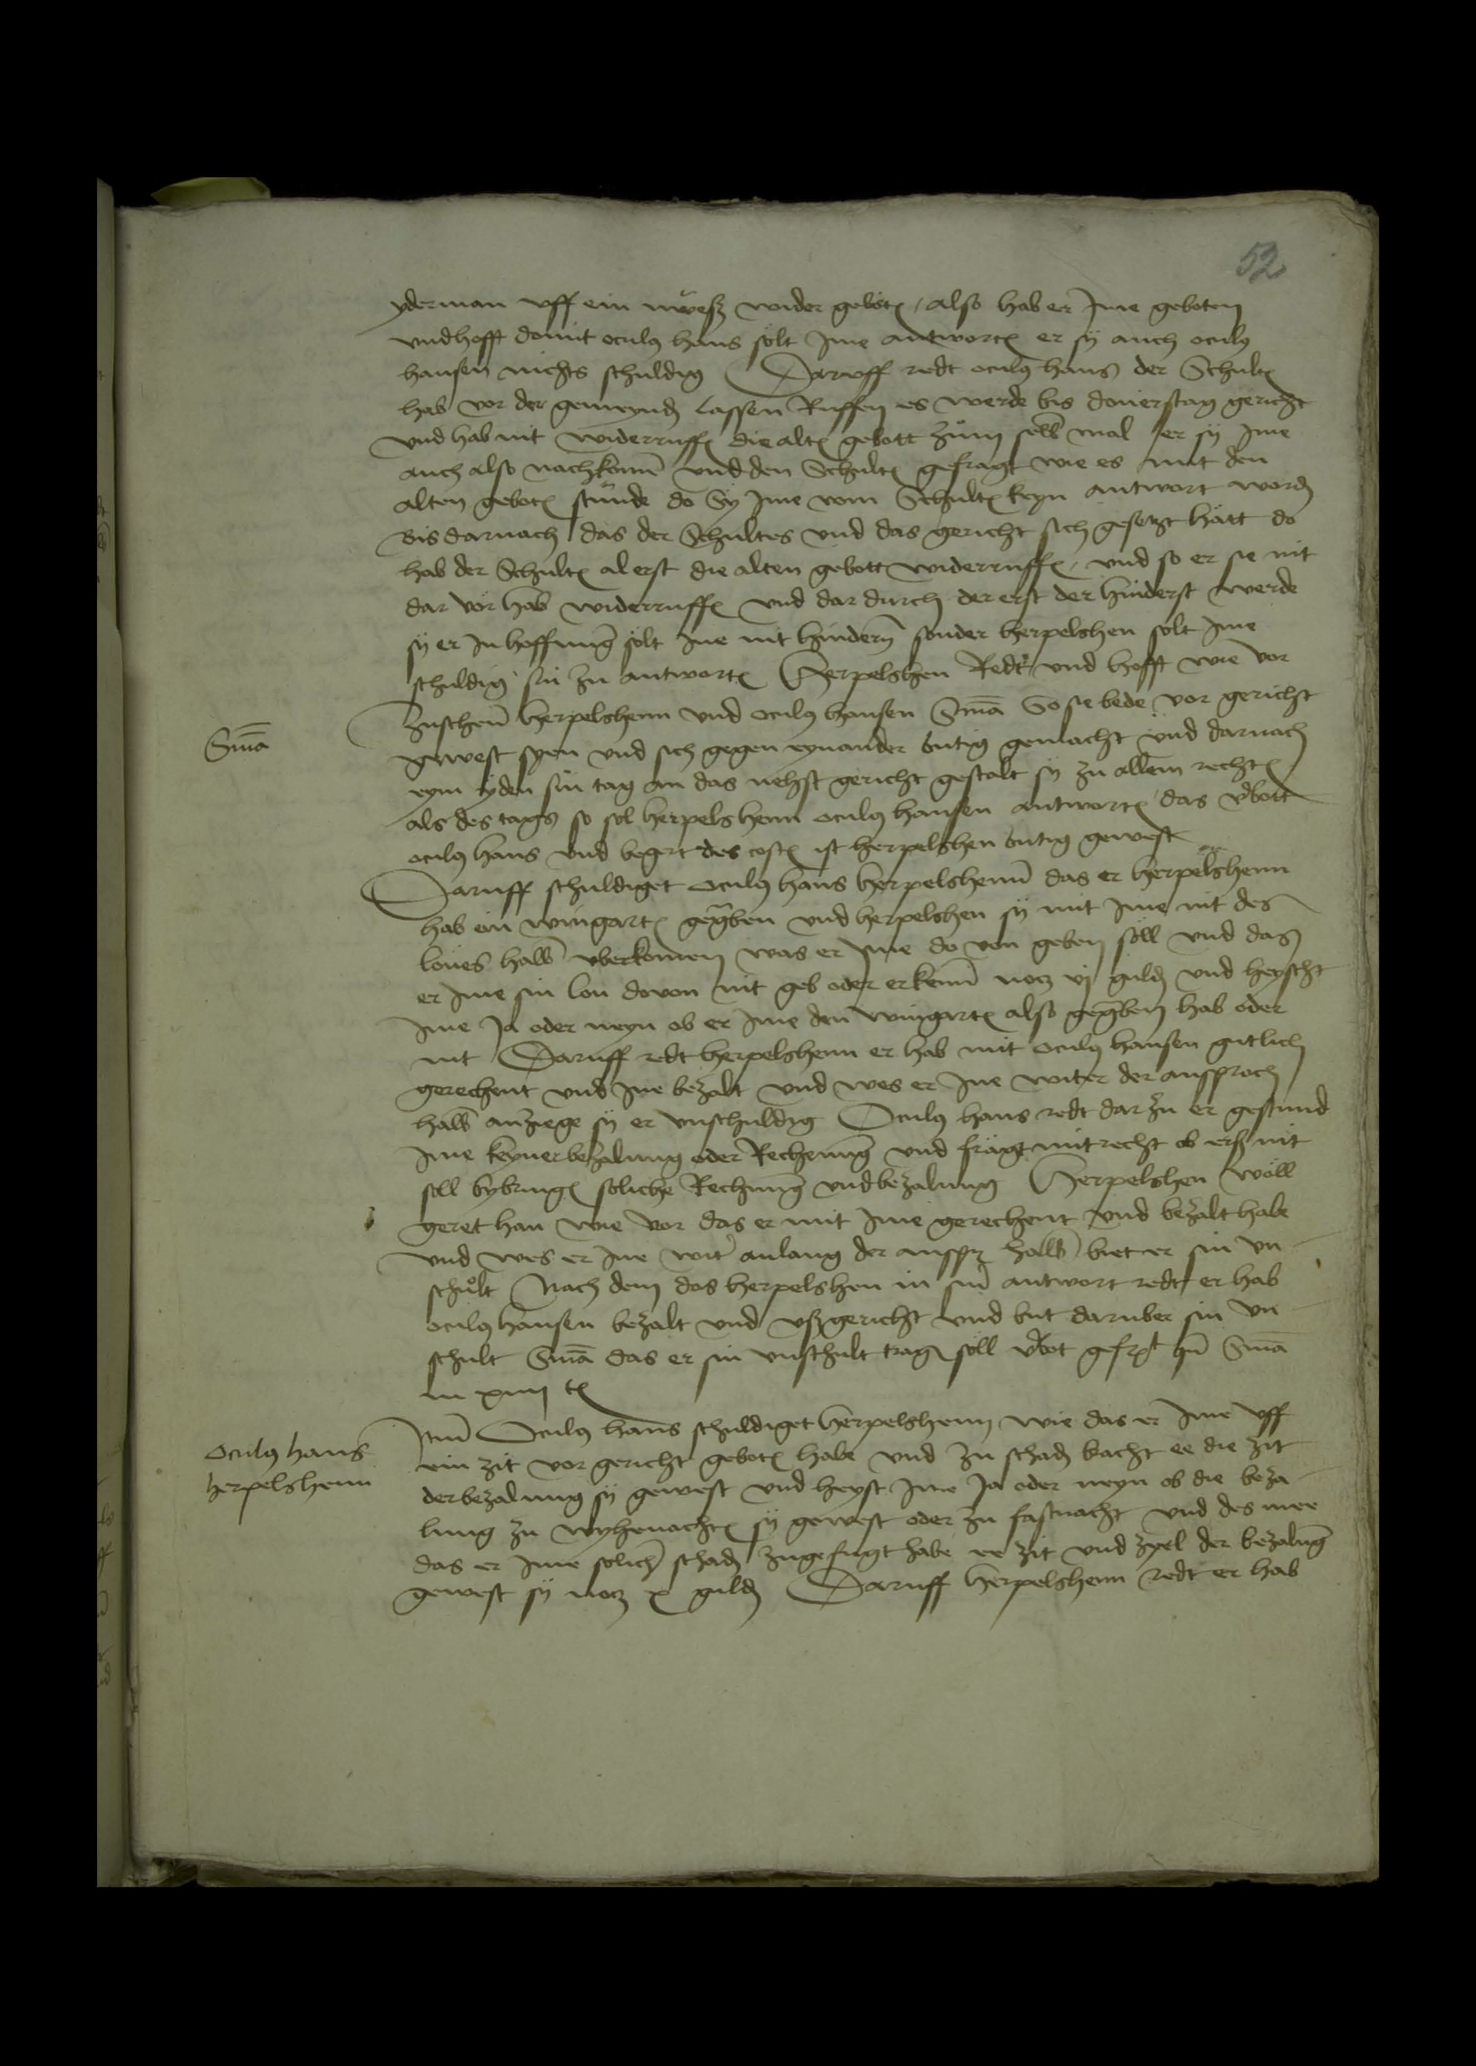 52
yderman uff ein nuwesz wider geboten / also hab er Ime geboten
und hofft domit oculus hans solt Ime antworten er sy auch oculus
hansen nichts schuldig Daruff redt oculus hans der Schultes
hab vor der gemeynde lassen Ruffen es werde bis donerstag gericht
und hab nit widerruffen die alten gebott zum selben mal er sy Ime
auch also nachkommen und den Schultes gefragt wie es mit den
alten geboten stunde do Sy Ime vom Schultes keyn antwort worden
Bis darnach das der Schultes und das gericht sich gesetzt hatt do
hab der Schultes al erst die alten gebott widerruffen, und so er sie nit
dar vor hab widerruffen und dar durch der erst der hinderst werde
sy er In hoffnung solt Ine nit hindern sonder herpelshen solt Ime
schuldig sin zu antworten Herpelshen Redt und hofft wie vor
Sma
Zuschen herpelshenn und oculus hansen Sma So sie bede vor gericht
gewest syen und sich gegen eynander butig gemacht und darnach
eym yden sin tag an das nehst gericht gestalt sy zu allem rechten
als des tags so sol herpelshenn oculus hansen antworten das verbott
oculus hans und begert des costen ist herpelshen butig gewest
Daruff schuldiget oculus hans herpelshenn das er herpelshenn
hab ein wingarten gegraben und herpelshen sy mit Ime nit des
lones halb uberkomen was er Ime do von geben soll und das
er Ime sin lon dovon nit geb oder erkenn nocz vj gulden und heyscht
Ime Ja oder neyn ob er Ime den wingarten also gegraben hab oder
nit Daruff redt herpelshenn er hab mit oculus hansen gutlich
gerechent und Ine bezalt und wes er Ine witer der ansproch
halb anziege sy er unschuldig Oculus hans redt dar zu er gestund
Ime keyner bezalung oder Rechenung und fragt mit recht ob ersz nit
soll bybringen soliche Rechnung und bezalung Herpelshen woll
geret han wie vor das er mit Ime gerechent und bezalt habe
und wes er Ine witer anlang der ansproch halb biet er sin un
schult Nach dem das herpelshen in siner antwort redt er hab
oculus hansen bezalt und uszgericht und but daruber sin un
schult Sma das er sin unschult tragen soll verbot
in xiiij ten
oculus hans
herpelshenn
Item Oculus hans schuldiget herpelshenn wie das er Ime uff
ein zit vor gericht geboten habe und zu schaden bracht ee die zit
der bezalung sy gewest und heyst Ime Ja oder neyn ob die beza
lung zu wyhenachten sy gewest oder zu fastnacht und des mee
das er Ime solichen schaden zugefugt habe ee zit und zyel der bezalung
gewest sy nocz x gulden Daruff herpelshenn redt er hab